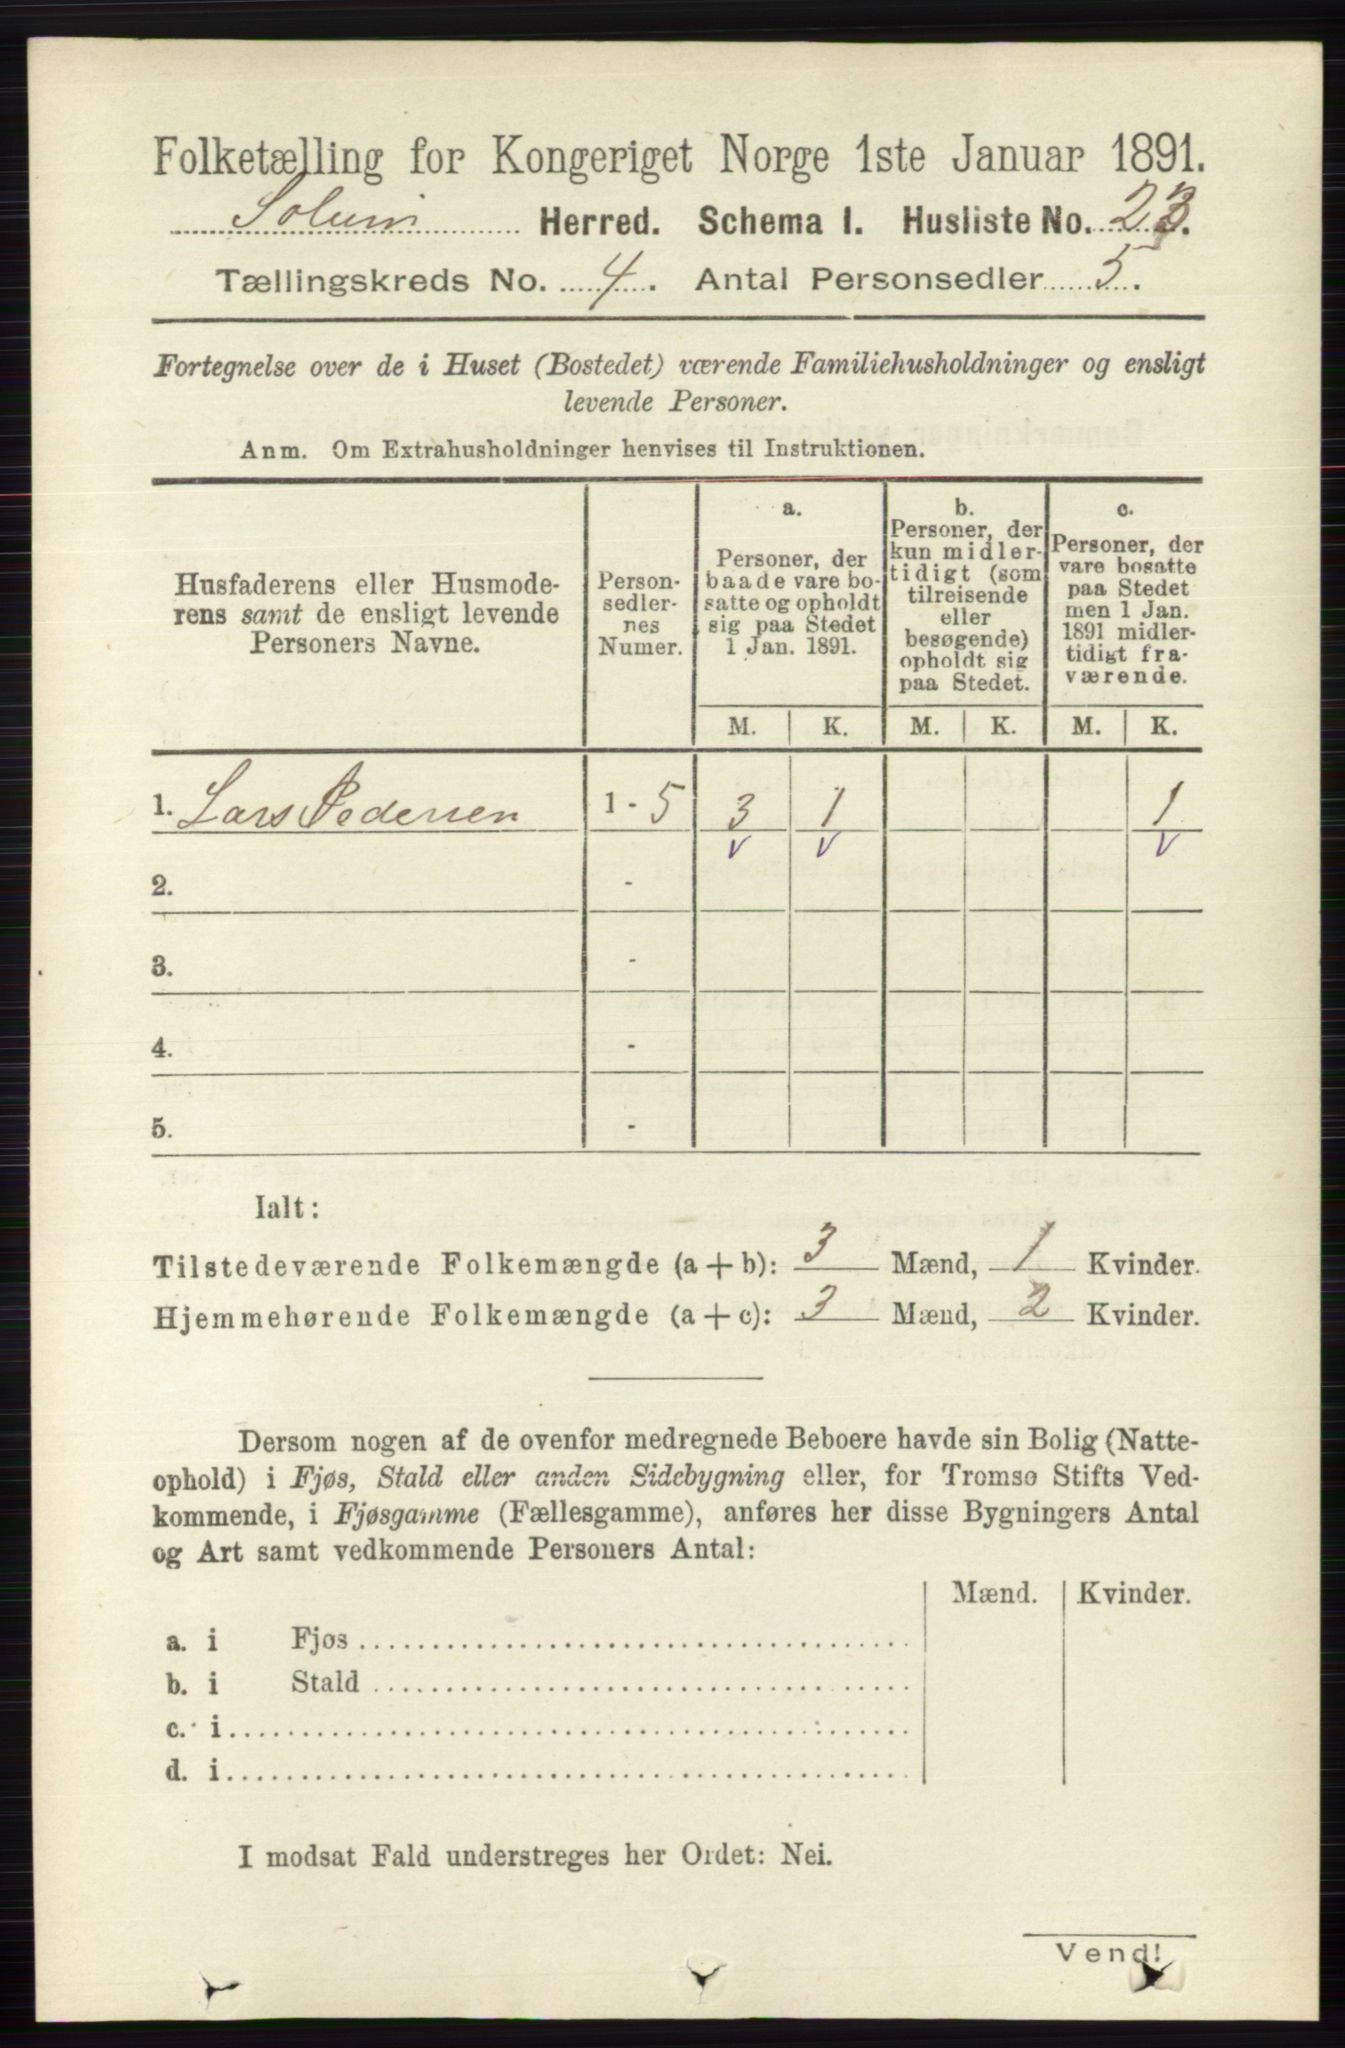 Folketælling for Kongeriget Norge 1ste Januar 1891.
Solum Herred. Schema I. Husliste No. 23.
Tællingskreds No. 4. Antal Personsedler 5.
Fortegnelse over de i Huset (Bostedet) værende Familiehusholdninger og ensligt
levende Personer.
Anm. Om Extrahusholdninger henvises til Instruktionen.
Husfaderens eller Husmode-
rens samt de ensligt levende
Personers Navne.
Person-
sedler-
nes
Numer.
a.
Personer, der
baade vare bo-
satte og opholdt
sig paa Stedet
1 Jan. 1891.
b.
Personer, der
kun midler-
tidigt (som
tilreisende
eller
besøgende)
opholdt sig
paa Stedet.
c.
Personer, der
vare bosatte
paa Stedet
men 1 Jan.
1891 midler-
tidigt fra-
værende.
M. K. M. K. M. K.
1. Lars Pedersen 1 - 5 3 1 1
v v v
2. -
3. -
4. -
5. -
Ialt:
Tilstedeværende Folkemængde (a + b): 3 Mænd, 1 Kvinder.
Hjemmehørende Folkemængde (a + c): 3 Mænd, 2 Kvinder.
Dersom nogen af de ovenfor medregnede Beboere havde sin Bolig (Natte-
ophold) i Fjøs, Stald eller anden Sidebygning eller, for Tromsø Stifts Ved-
kommende, i Fjøsgamme (Fællesgamme), anføres her disse Bygningers Antal
og Art samt vedkommende Personers Antal:
Mænd. Kvinder.
a. i Fjøs
b. i Stald
c. i
d. i
I modsat Fald understreges her Ordet: Nei.
Vend!